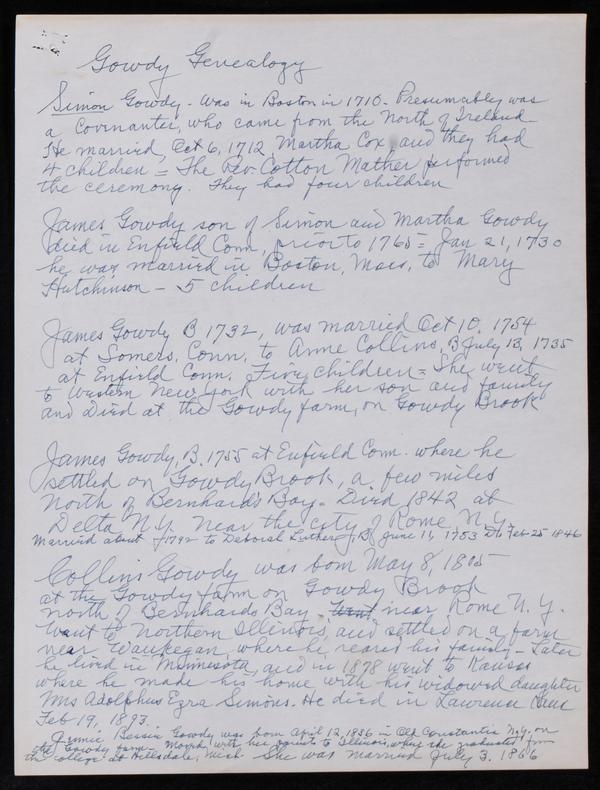 Gowdy Genealogy
Simon Gowdy - Was in Boston in 1710 - Presumably was
a Covinanter, who came from the North of Ireland -
He married, Oct 6, 1712 Martha Cox, and they had
4 children = The Rev. Cotton Mather performed
the ceremony. They had four children
James Gowdy son of Simon and Martha Gowdy
died in Enfield Conn, prior to 1765 = Jan 21, 1730
he was married in Boston, Mass, to Mary
Hutchinson - 5 children
James Gowdy B 1732, was married Oct 10, 1754
at Somers, Conn. to Anne Collins, B July 13, 1735
at Enfield Conn. Five children = She went
to Western New York with her son and family
and Died at the Gowdy farm, on Gowdy Brook
James Gowdy, B. 1755 at Enfield Conn. where he
settled on Gowdy Brook, a few miles
North of Bernhard's Bay. Died 1842 at
Delta N.Y. near the city of Rome N.Y.
Married about 1792 to Deborah Luther, B. June 11, 1753 D. Feb 25 1846
Collins Gowdy was born May 8, 1805
at the Gowdy farm on Gowdy Brook
north of Bernhards Bay - Went near Rome N.Y.
Want to Northern Illinois, and settled on a farm
near Waukegan, where he reared his family - Later
he lived in Minnesota, and in 1878 went to Kansas
where he made his home with his widowed daughter
Mrs Adolphus Ezra Simons. He died in Lawrence
Feb 19, 1893.
Bessie Gowdy was born April 12, 1836 in Old Constantia N.Y. on
the Gowdy farm - Moved with her parents to Illinois, where she graduated from
the College at Hillsdale, Mich She was married July 3, 1866